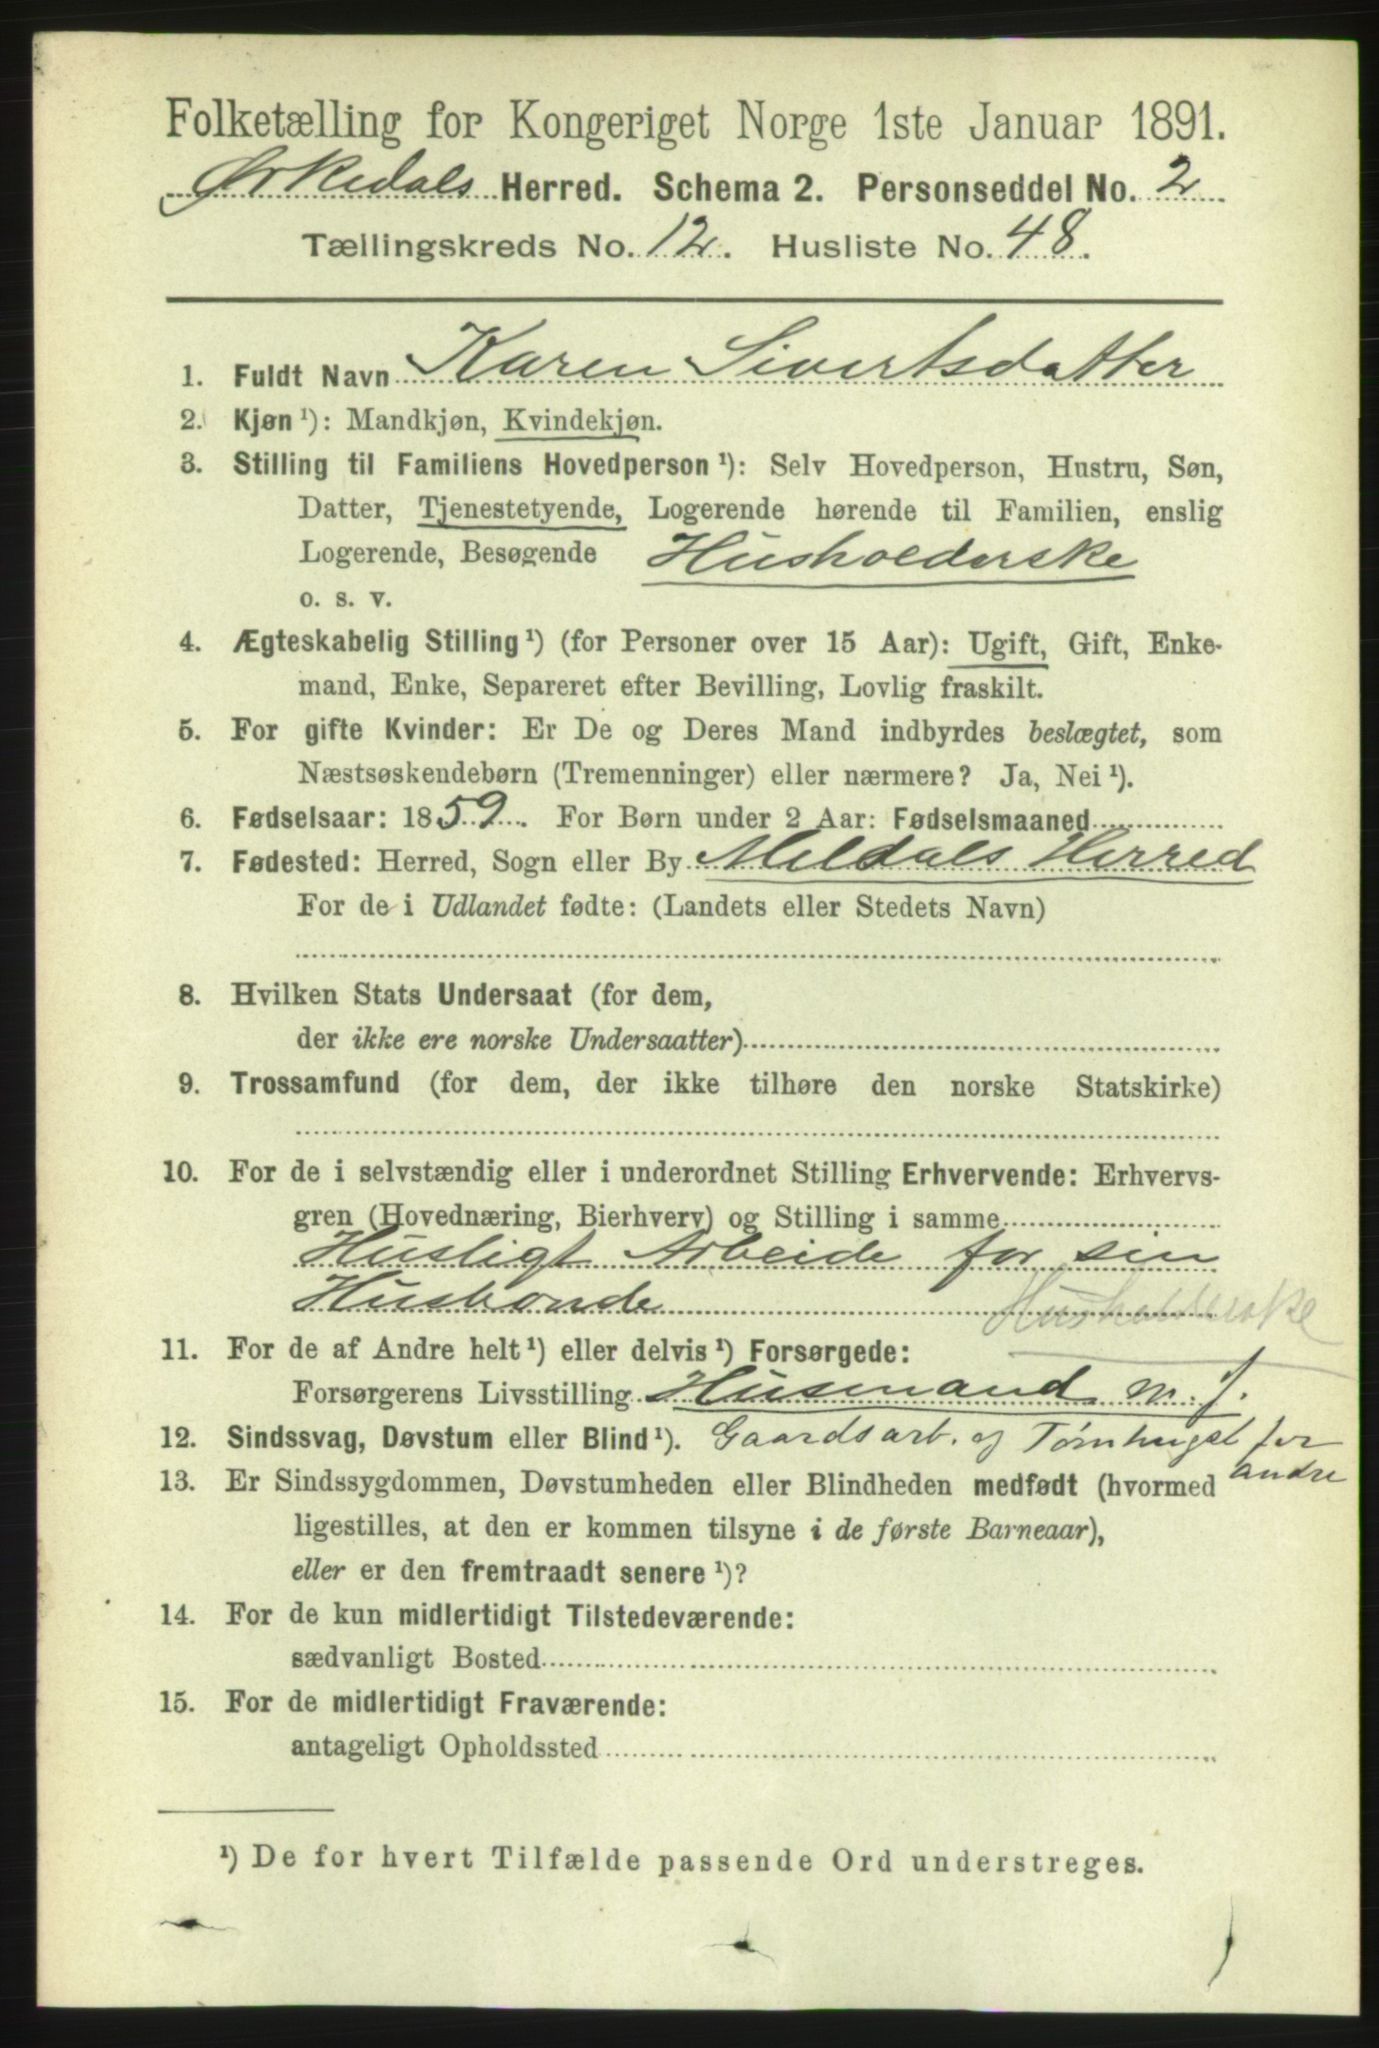 Folketælling for Kongeriget Norge 1ste Januar 1891.
Ørkedals Herred. Schema 2. Personseddel No. 2
Tællingskreds No. 12. Husliste No. 48.
1. Fuldt Navn Karen Sivertsdatter
2. Kjøn ¹): Mandkjøn, Kvindekjøn.
3. Stilling til Familiens Hovedperson ¹): Selv Hovedperson, Hustru, Søn,
Datter, Tjenestetyende, Logerende hørende til Familien, enslig
Logerende, Besøgende Husholderske
o. s. v.
4. Ægteskabelig Stilling ¹) (for Personer over 15 Aar): Ugift, Gift, Enke-
mand, Enke, Separeret efter Bevilling, Lovlig fraskilt.
5. For gifte Kvinder: Er De og Deres Mand indbyrdes beslægtet, som
Næstsøskendebørn (Tremenninger) eller nærmere? Ja, Nei ¹).
6. Fødselsaar: 1859. For Børn under 2 Aar: Fødselsmaaned
7. Fødested: Herred, Sogn eller By Meldals Herred
For de i Udlandet fødte: (Landets eller Stedets Navn)
8. Hvilken Stats Undersaat (for dem,
der ikke ere norske Undersaatter)
9. Trossamfund (for dem, der ikke tilhøre den norske Statskirke)
10. For de i selvstændig eller i underordnet Stilling Erhvervende: Erhvervs-
gren (Hovednæring, Bierhverv) og Stilling i samme
Husligt Arbeide for sin
Husbonde Husholderske
11. For de af Andre helt ¹) eller delvis ¹) Forsørgede:
Forsørgerens Livsstilling Husmand m. J.
12. Sindssvag, Døvstum eller Blind ¹). Gaardsarb. og Tømhugst for
andre
13. Er Sindssygdommen, Døvstumheden eller Blindheden medfødt (hvormed
ligestilles, at den er kommen tilsyne i de første Barneaar),
eller er den fremtraadt senere ¹)?
14. For de kun midlertidigt Tilstedeværende:
sædvanligt Bosted
15. For de midlertidigt Fraværende:
antageligt Opholdssted
¹) De for hvert Tilfælde passende Ord understreges.